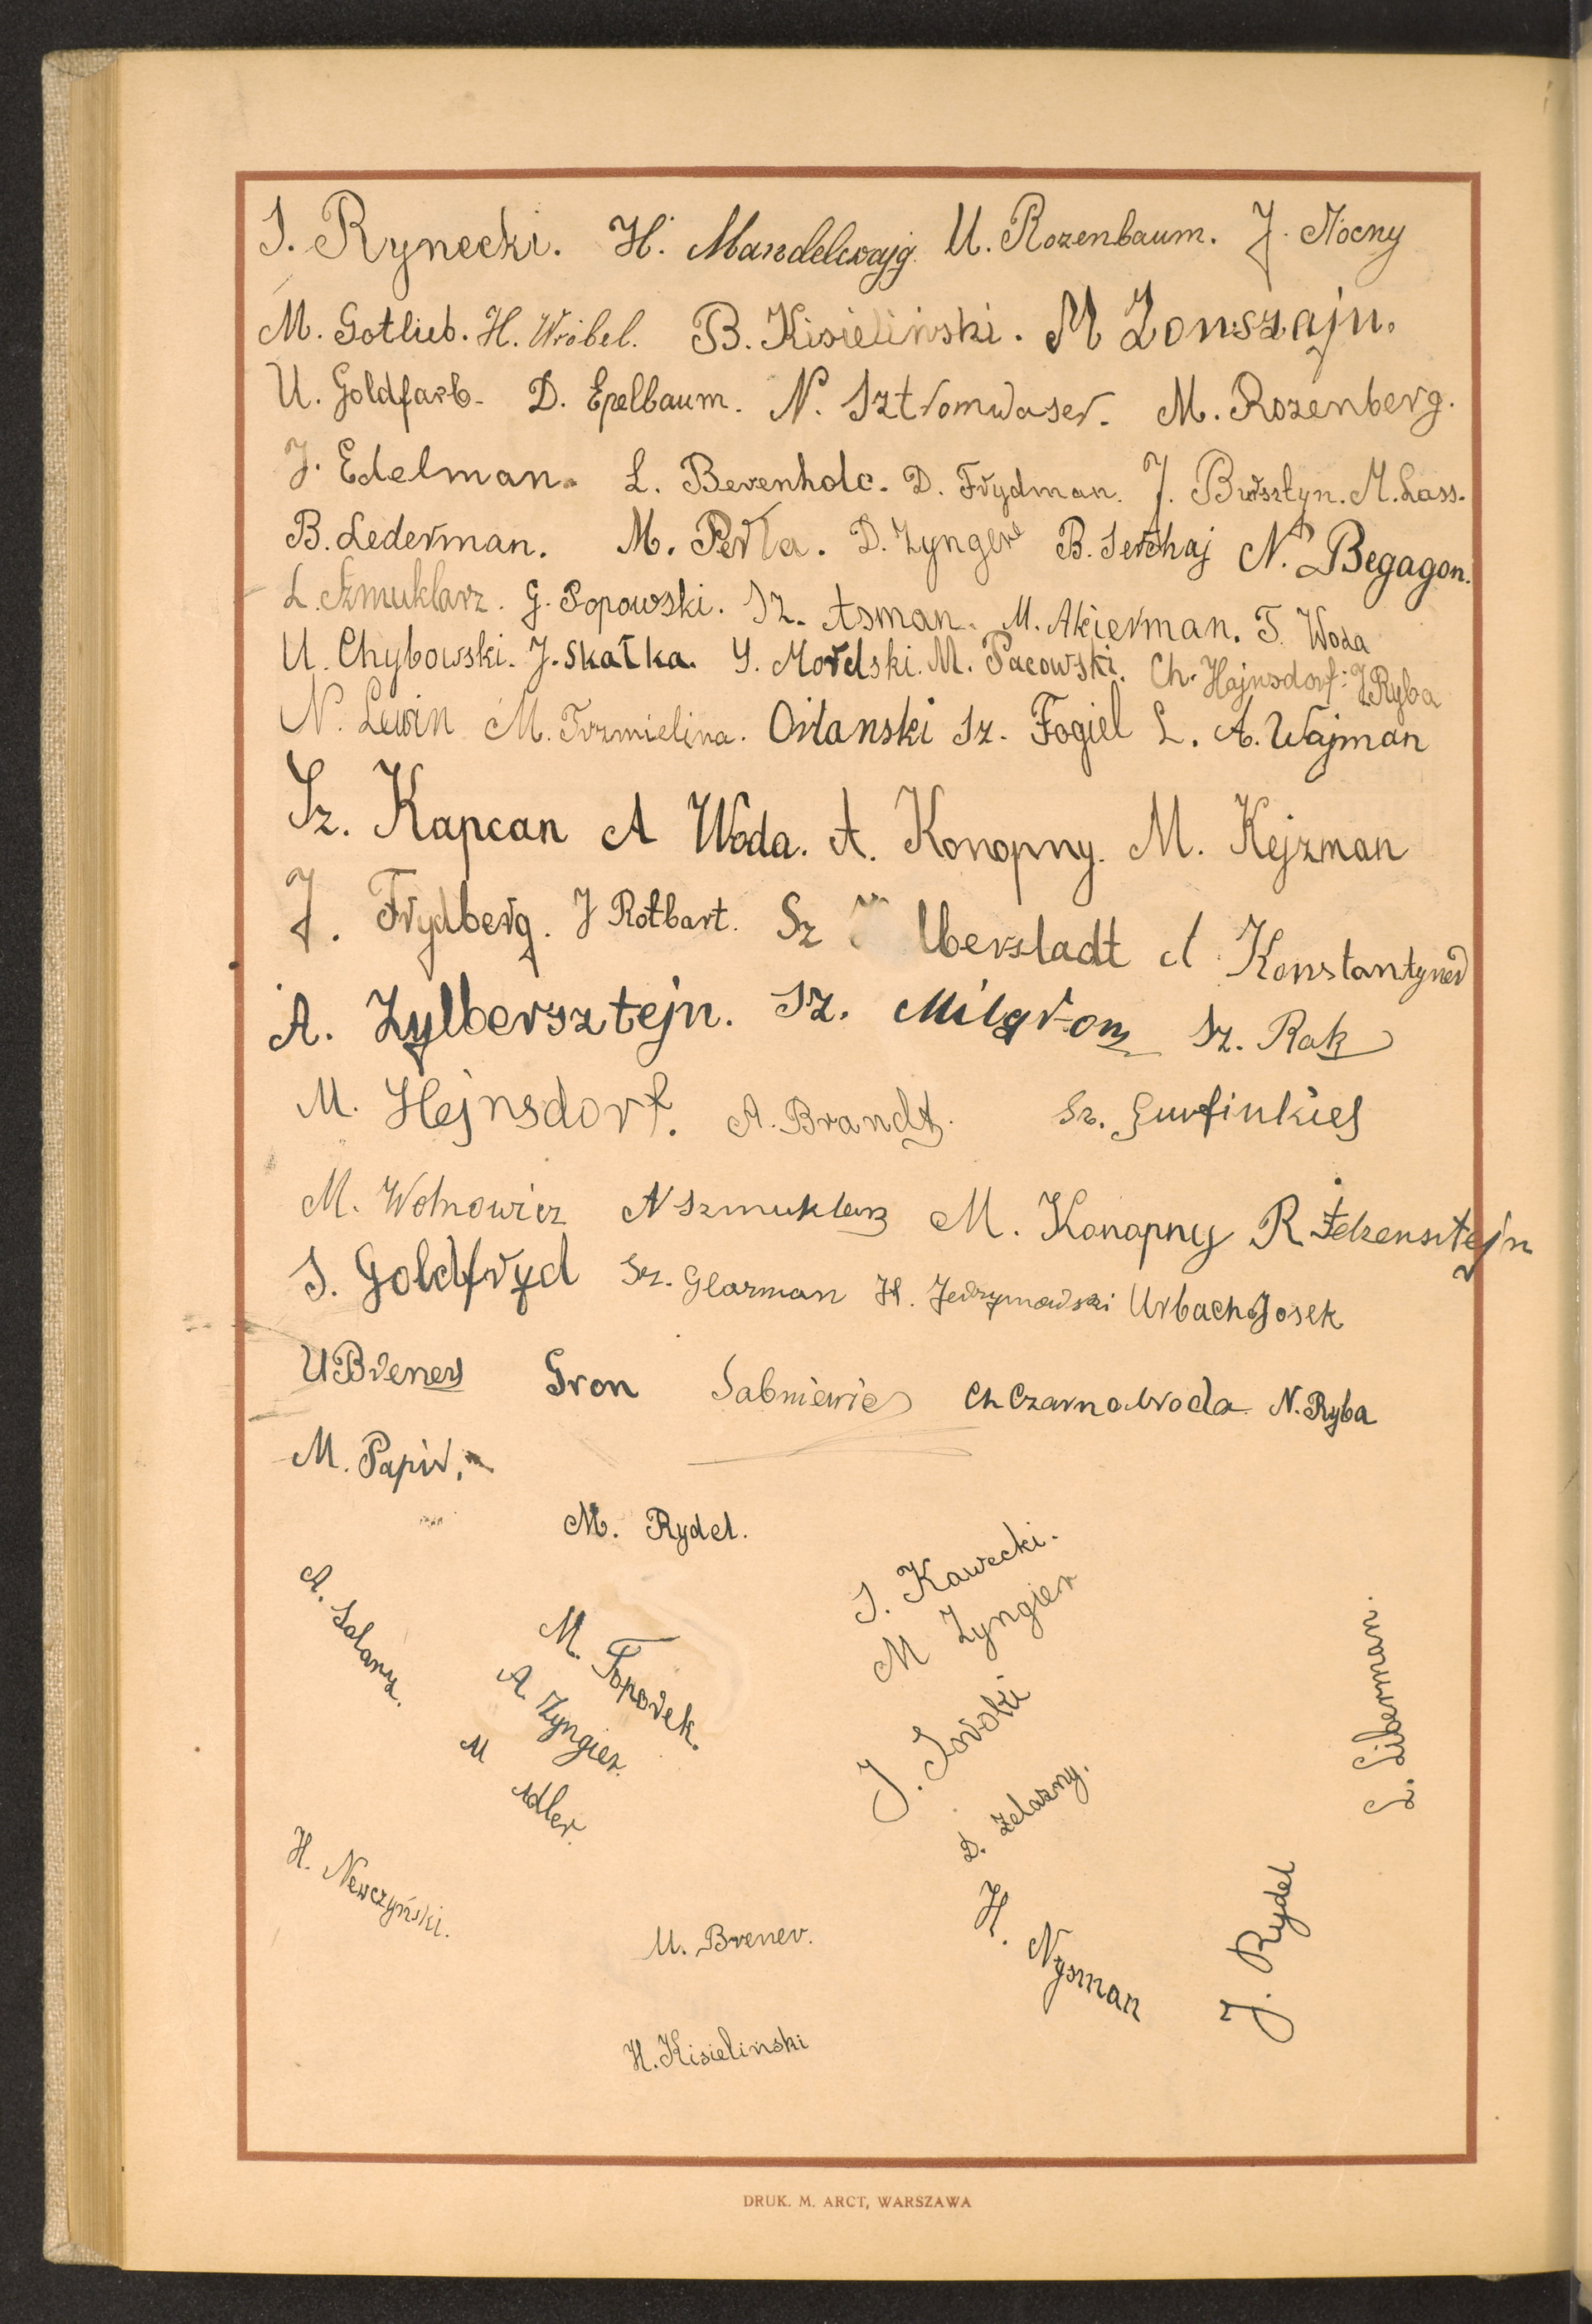 I. Rynecki. H. Mandelcwajg. U. Rozenbaum. J. Nocny
M. Gotlieb. H. Wróbel. B. Kisieliński. M Zonszajn.
U. Goldfarb. D. Epelbaum. N. Sztromwaser. M. Rozenberg.
J. Edelman. L. Berenholc. D. Frydman. J. Bursztyn. M. Lass.
B. Lederman. M. Perła. D. Zynger B. Serchaj N. Begagon.
L. Szmuklarz. G. Popowski. Sz. Asman. M. Akierman. T. Woda
U. Chybowski. J. Skałka. Y. Mordski. M. Pacowski. Ch. Hajnsdorf. J. Ryba
N. Lewin M. Trzmielina. Orlanski Sz. Fogiel L. A. Wajman
Sz. Kapcan A Woda. A. Konopny. M. Kejzman
J. Frydberg. J Rotbart. Sz lberstadt A Konstantyner
A. Zylbersztejn. Sz. Milgrom Sz. Rak
M. Hejnsdorf. A. Brandt. Sz. Gurfinkiel
M. Wolnowicz N Szmuklarz M. Konopny R
I. Goldfryd Sz. Glazman H. Jedrzymowski Urbach Josek
U Brener Gron Sabniewic Ch Czarnabroda N. Ryba
M. Papir.
M. Rydel.
A. Solarz.
M. Toporek.
A. Zyngier.
M Adler.
I. Kawecki.
M Zyngier
J.
D. Zelazny.
L. Liberman.
H. Newczyński.
U. Brener.
H. Nysman
J. Rydel
H. Kisielinski
DRUK. M. ARCT, WARSZAWA